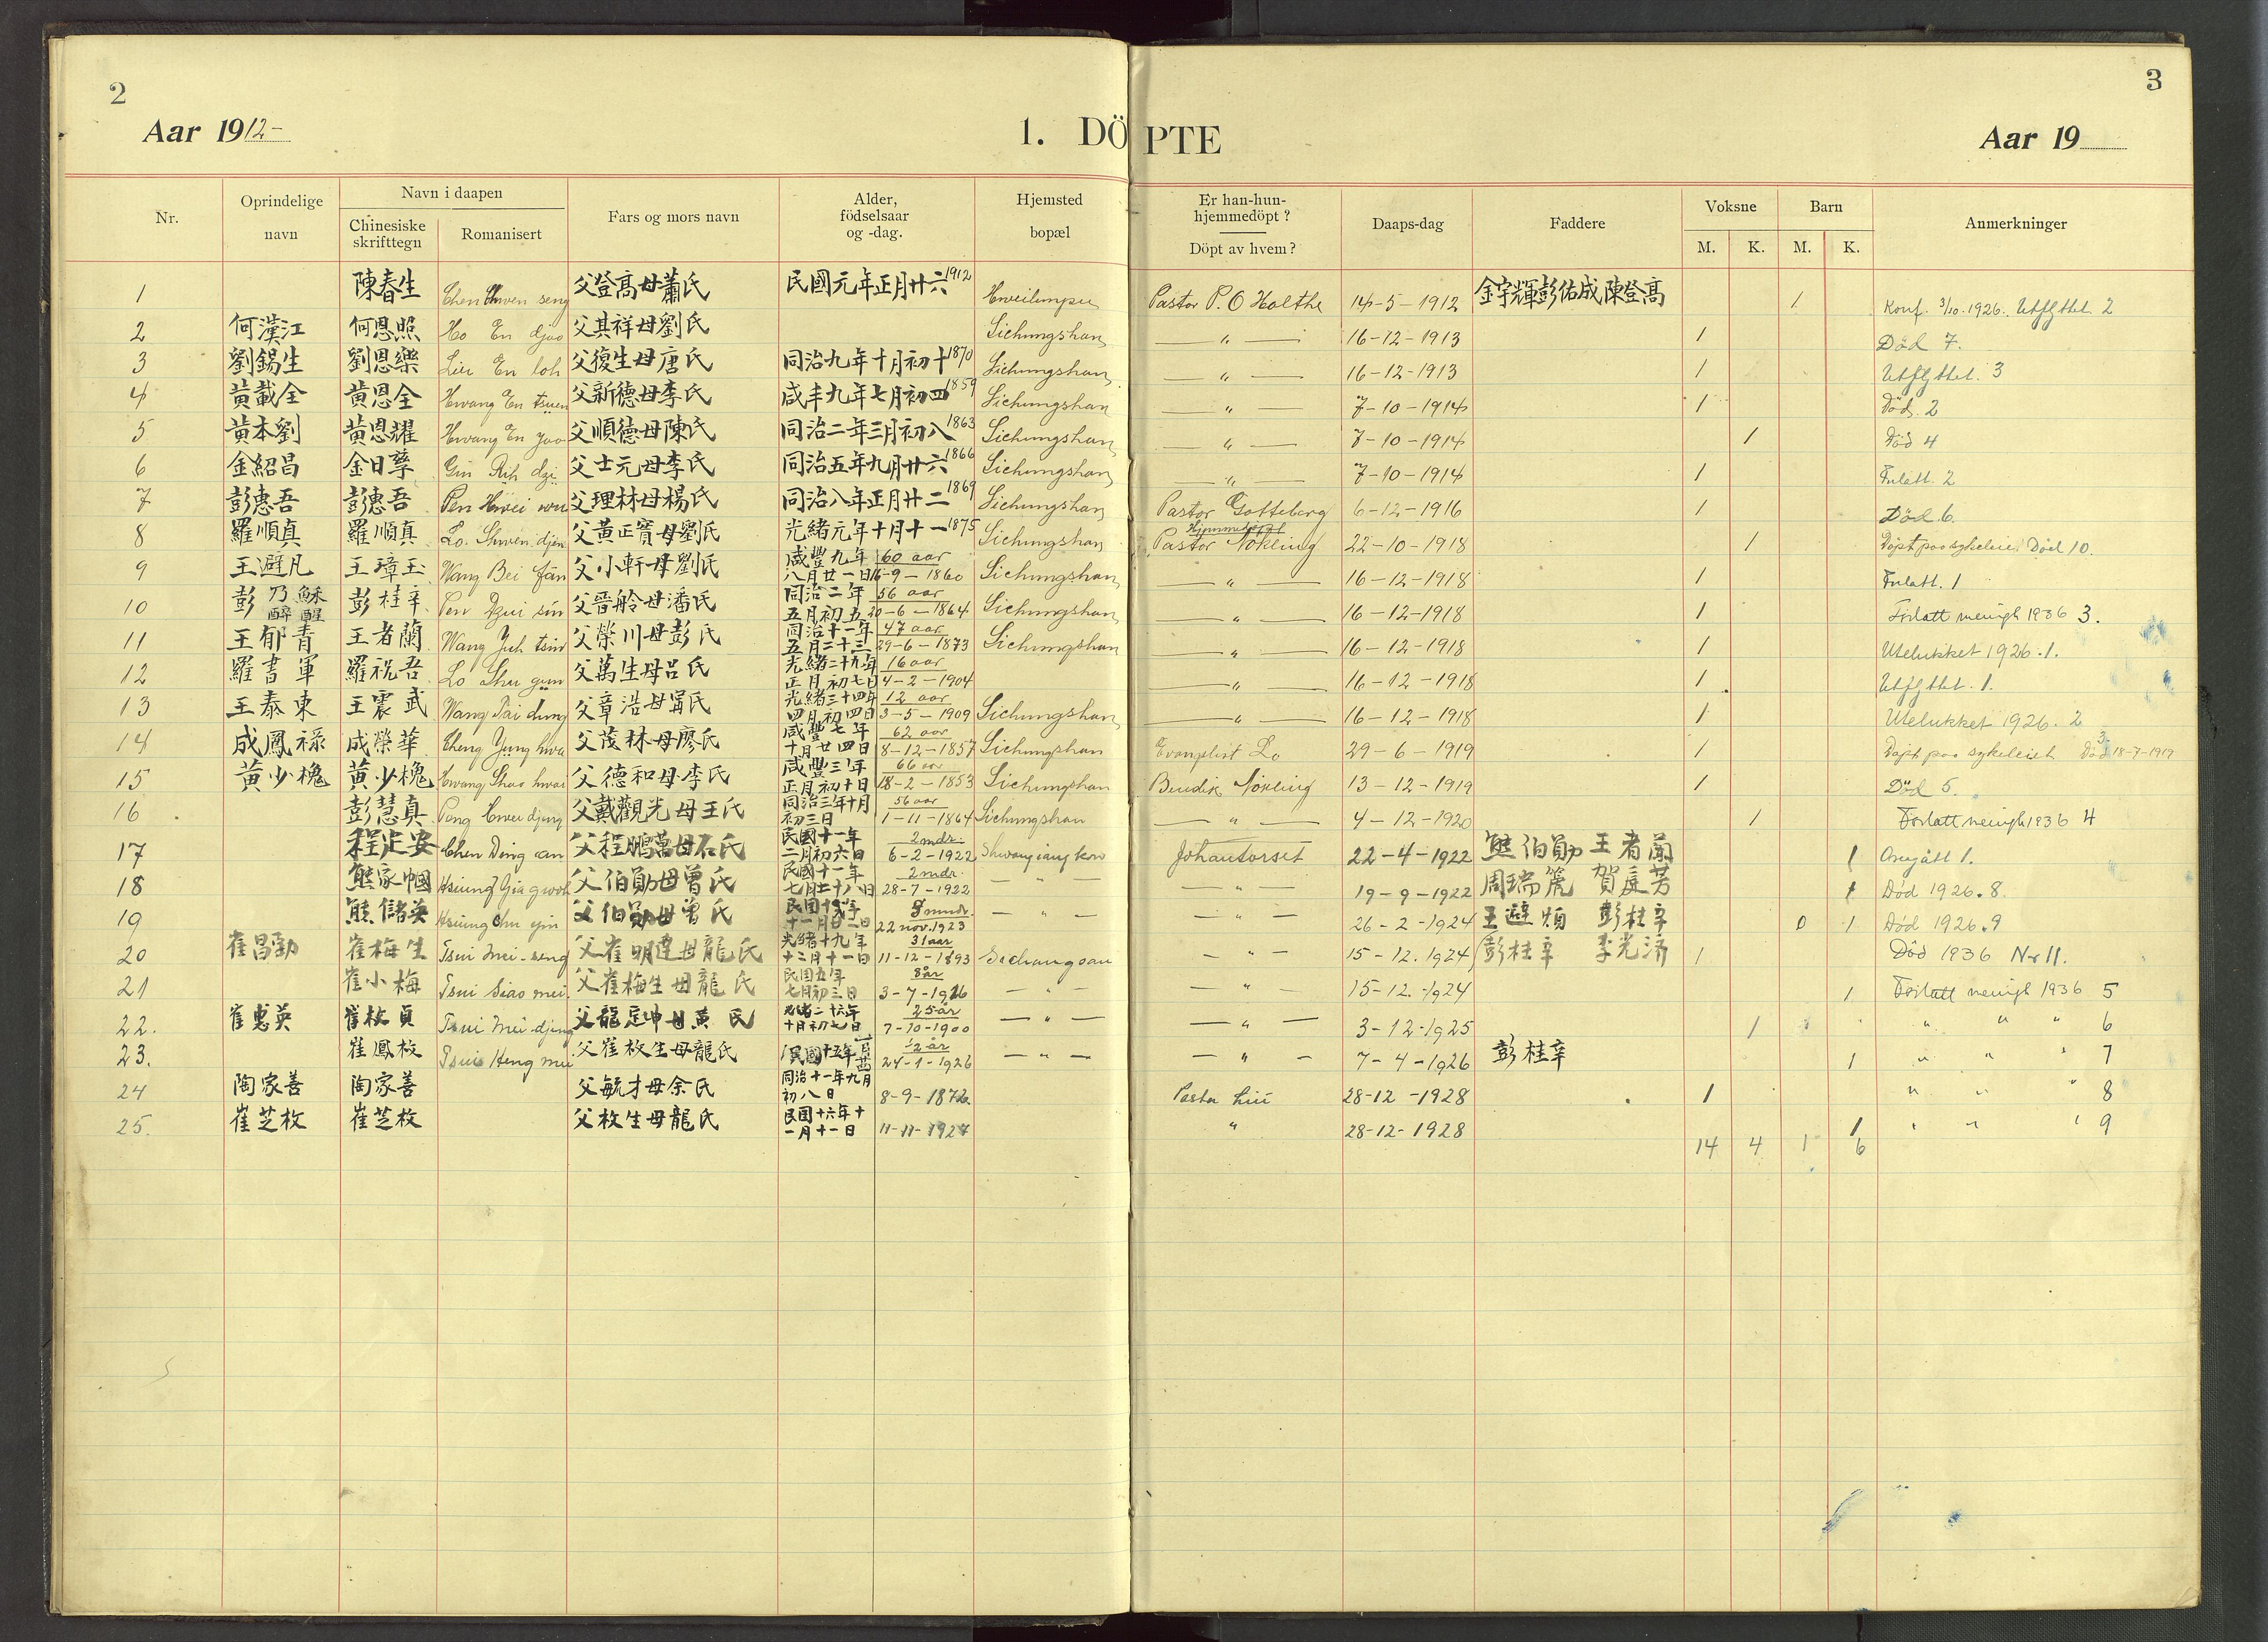 2
3
Aar 1912-
1. DÖPTE
Aar 19
Nr. Oprindelige navn Navn i daapen Chinesiske skrifttegn Romanisert Fars og mors navn Alder, födselsaar og -dag. Hjemsted bopæl Er han-hun-hjemmedöpt ? Döpt av hvem ? Daaps-dag Faddere Voksne M. K. Barn M. K. Anmerkninger
1 陳春生 Chen Chwen seng 父登高母蕭氏 民國元年正月廿六 1912 Hweilungpu Pastor P. O Holthe 14-5-1912 金宇輝彭佑成陳登高 1 Konf. 3/10. 1926. Utflyttet. 2
2 何漢江 何恩照 Ho En djao 父其祥母劉氏 Sichungshan — " — 16-12-1913 1 Död 7.
3 劉錫生 劉恩樂 Liu En loh 父復生母唐氏 同治九年十月初十 1870 Sichungshan — " — 16-12-1913 1 Utflyttet. 3
4 黃載全 黃恩全 Hwang En tsüen 父新德母李氏 咸丰九年七月初四 1859 Sichungshan — " — 7-10-1914 1 Död. 2
5 黃本劉 黃恩耀 Hwang En yao 父順德母陳氏 同治二年三月初八 1863 Sichungshan — " — 7-10-1914 1 Död 4
6 金紹昌 金日孳 Gin Rih dzi 父士元母李氏 同治五年九月廿六 1866 Sichungshan — " — 7-10-1914 1 2
7 彭惠吾 彭惠吾 Pen Hwei wu 父理林母楊氏 同治八年正月廿二 1869 Sichungshan Pastor Gotteberg 6-12-1916 1 Död 6.
8 羅順真 羅順真 Lo Shwen djen 父黃正寶母劉氏 光緒元年十月十一 1875 Sichungshan Hjemmedöpt Pastor Nökling 22-10-1918 1 Döpt paa sykeleie. Död 10.
9 王避凡 王璋玉 Wang Bei fan 父小軒母劉氏 咸豐九年八月廿一日 60 aar 16-9-1860 Sichungshan — " — 16-12-1918 1 1
10 彭乃醉穌醒 彭桂辛 Pen Dzui sin 父晋舲母潘氏 同治二年五月初五 56 aar 20-6-1864 Sichungshan — " — 16-12-1918 1 Forlatt menigh 1936 3.
11 王郁青 王者蘭 Wang Yuh tsin 父榮川母彭氏 同治十一年五月二十三 47 aar 29-6-1873 Sichungshan — " — 16-12-1918 1 Utelukket 1926. 1.
12 羅書軍 羅祝吾 Lo Shu gün 父萬生母呂氏 光緒二十九年正月初七日 16 aar 4-2-1904 — " — 16-12-1918 1 Utflyttet. 1.
13 王泰東 王震武 Wang Tai dung 父章浩母甯氏 光緒三十四年四月初四日 12 aar 3-5-1909 Sichungshan — " — 16-12-1918 1 Utelukket 1926. 2
14 成鳳祿 成榮華 Cheng Yung hwa 父茂林母廖氏 咸豐七年十月廿四日 62 aar 8-12-1857 Sichungshan Evangelist Lo 29-6-1919 1 Döpt paa sykeleiet Död 18-7-1919 3.
15 黃少槐 黃少槐 Hwang Shao hwai 父德和母李氏 咸豐三年正月初十日 66 aar 18-2-1853 Sichungshan Bendik Nökling 13-12-1919 1 Död 5.
16 彭慧真 Peng Hwei djeng 父戴觀光母王氏 同治三年十月初三日 56 aar 1-11-1864 Sichungshan — " — 4-12-1920 1 Forlatt menigh 1936 4
17 程定安 Chen Ding an 父程鵬萬母石氏 民國十一年二月初六日 2 mdr. 6-2-1922 Shwangiangkow Johan Torset 22-4-1922 熊伯勛 王者蘭 1 Avgått 1.
18 熊家幗 Hsiung Gia gwoh 父伯勛母曾氏 民國十一年七月二十八日 2 mdr. 28-7-1922 — " — — " — 19-9-1922 周瑞箎 賀庭芳 1 Död 1926. 8.
19 熊儲英 Hsiung Chu yin 父伯勛母曾氏 22 nov. 1923 — " — — " — 26-2-1924 王避煩 彭桂辛 0 1 Död 1926. 9
20 崔昌勁 崔梅生 Tsui Mei-seng 父崔明達母龍氏 光緒十九年十二月十一日 31 aar 11-12-1893 Sichangsan — " — 15-12-1924 彭桂辛 李光济 1 Död 1936 Nr 11.
21 崔小梅 Tsui Siao mei. 父崔梅生母龍氏 民国五年七月初三日 8 år 3-7-1916 — " — — " — 15-12-1924 1 Forlatt menigh 1936 5
22. 崔惠英 崔枚貞 Tsui Mei-djeng 父龍定坤母黃氏 光緒二十六年十月初七日 25 år 7-10-1900 — " — — " — 3-12-1925 1 " " " 6
23. 崔鳳枚 Tsui Heng mei 父崔枚生母龍氏 民國十五年 ½ år 24-1-1926 — " — — " — 7-4-1926 彭桂辛 1 " " " 7
24 陶家善 陶家善 父毓才母余氏 同治十一年九月初八日 8-9-1872 Pastor Liu 28-12-1928 1 " " " 8
25. 崔芝枚 崔芝枚 父枚生母龍氏 民国十六年十一月十一日 11-11-1927 " 28-12-1928 1 " " " 9
14 4 1 6